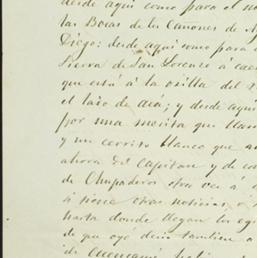 desde aqui como para el no
las Bocas de los Cañones de
Diego: desde aqui como para
Sierra de San Lorenzo á cae
que está á la orilla del
el lado de aca; y desde aqui
por una mesita que llam
y un cerrito blanco que a
ahora del Capitan y de co
de Chupadero otra vez á
si tiene otras noticias
hasta donde llegan los
de que oyó decir tambien
de Cuencamé